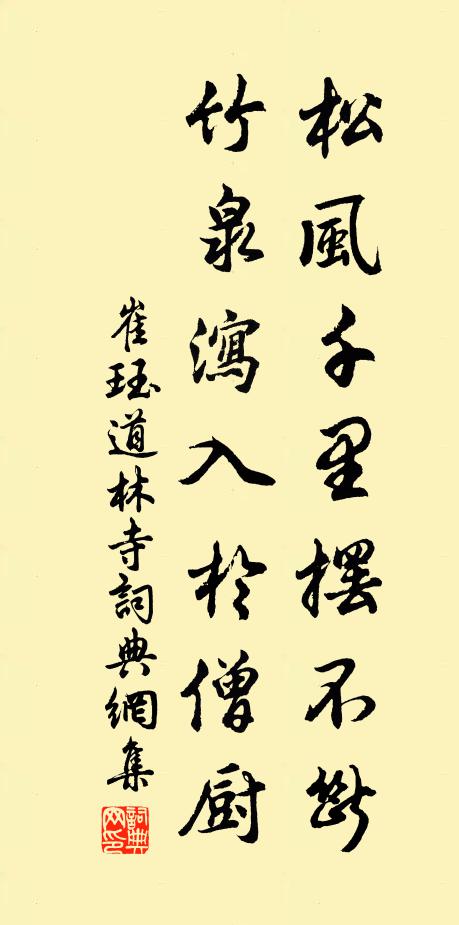 松風千里擺不斷
竹泉瀉入於僧厨
崔珏道林寺詞典網集
詞典網印